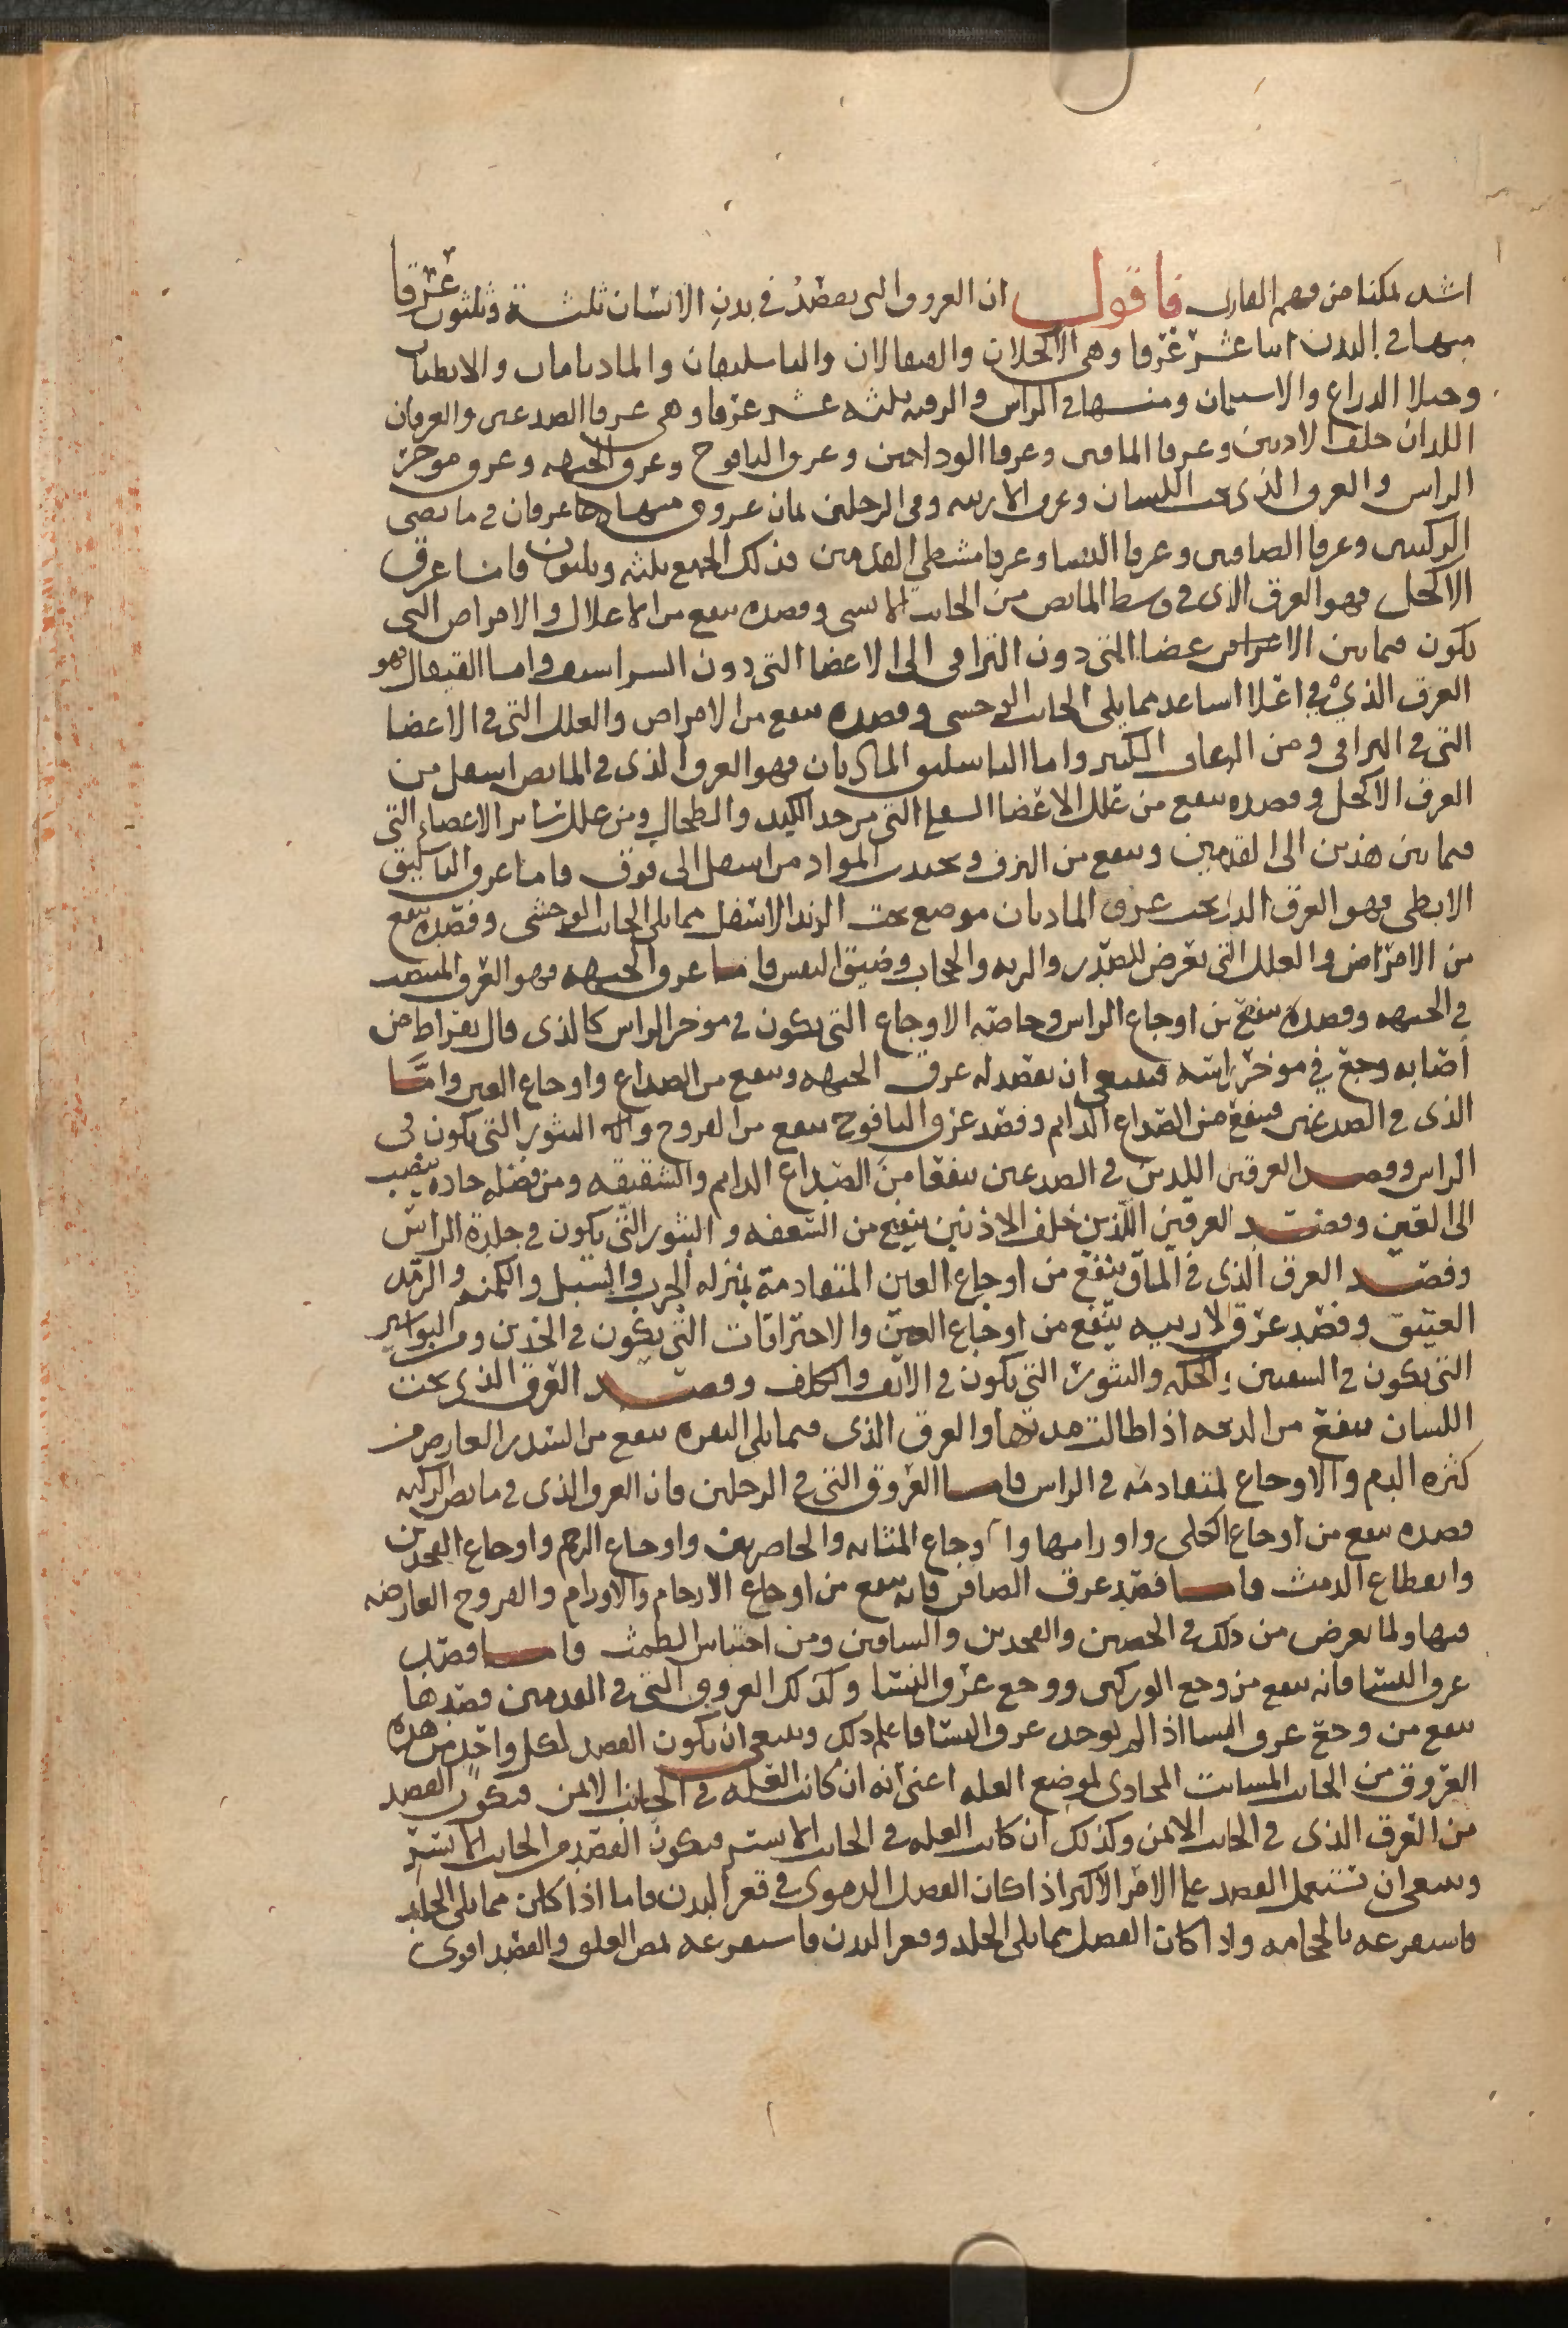 اشد تمكنا من فهم القارى فاقول ان العروق التى تفصد فى بدن الانسان ثلثة وثلثون عرقا
منها فى اليدين اثنا عشر عرقا وهى الاكحلان والقيفالان والباسليقان والماديانان والابطيان
وحبلا الدراع والاسيلمان ومنها فى الراس والرقبه ثلثه عشر عرقا وهى عرقا الصدغين والعرقان
اللذان خلف الادنين وعرقا الماقين وعرقا الوداجين وعرق اليافوخ وعرق الجبهه وعرق موخر
الراس والعرق الذى تحت اللسان وعرق الارنبه وفى الرجلين ثمان عروق منها عرقان فى مابضى
الركبتين وعرقا الصافنين وعرقا النسا وعرقا مشطى القدمين فذلك الجميع ثلثه وثلثون فاما عرق
الاكحل فهو العرق الذى فى وسط المابض من الجانب الانسى وفصده ينفع من الاعلال والامراض التى
تكون فيما بين الاعضا التى دون التراقى الى الاعضا التى دون الشراسيف واما القيفال فهو
العرق الذى فى اعلا الساعد مما يلى الجانب الوحشى وفصده ينفع من الامراض والعلل التى فى الاعضا
التى فى التراقى ومن الرعاف الكثير واما الباسليق الماديان فهو العرق الذى فى المابض اسفل من
العرق الاكحل وفصده ينفع من علل الاعضا السفلى التى من حد الكبد والطحال ومن علل سائر الاعضاء التى
فيما بين هذين الى القدمين وينفع من النزف ويجذب المواد من اسفل الى فوق فاما عرق الباسليق
الابطى فهو العرق الذى تحت عرق الماديان موضع تحت الزند الاسفل مما يلى الجانب الوحشى وفصده ينفع
من الامراض والعلل التى تعرض للصدر والريه والحجاب وضيق النفس فاما عرق الجبهه فهو العرق المنتصب
فى الجبهه وفصده ينفع من اوجاع الراس وخاصه الاوجاع التى تكون فى موخر الراس كالذى قال بقراط من
اصابه وجع فى موخر راسه فينبغى ان يفصد له عرق الجبهه وينفع من الصداع واوجاع العين واما
الذى فى الصدغين فينفع من الصداع الدايم وفصد عرق اليافوخ ينفع من القروح والبثور التى تكون فى
الراس وفصد العرقين اللذين فى الصدغين ينفعا من الصداع الدايم والشقيقه ومن فضله حاده تنصب
الى العين وفصد العرقين اللذين خلف الاذنين ينفع من السعفه و البثور التى تكون فى جلدة الراس
وفصد العرق الذى فى الماق ينفع من اوجاع العين المتقادمة بمنزله الجرب والسبل والكمنه والرمد
العتيق وفصد عرق الارنبه ينفع من اوجاع العين والاحتراقات التى تكون فى الخدين ومن البواسير
التى تكون فى الشفتين والحكه والبثور التى تكون فى الانف والكلف وفصد العرق الذى تحت
اللسان ينفع من الدبحه اذا طالت مدتها والعرق الذى فيما يلى النقره ينفع من السدر العارض من
كثره الدم والاوجاع المتقادمه فى الراس فاما العروق التى فى الرجلين فان العرق الذى فى مابض الركبه
فصده ينفع من اوجاع الكلى واورامها واوجاع المثانه والخاصرتين واوجاع الرحم واوجاع الفخدين
وانقطاع الدمث فاما فصد عرق الصافن فانه ينفع من اوجاع الارحام والاورام والقروح العارضه
فيها ولما يعرض من ذلك فى الخصيين والفخدين والساقين ومن احتباس الطمث فاما فصد
عرق النسا فانه ينفع من وجع الوركين ووجع عرق النسا وكذلك العروق التى فى القدمين فصدها
ينفع من وجع عرق النسا اذا لم يوجد عرق النسا فاعلم ذلك وينبغى ان يكون الفصد لكل واحد من هذه
العروق من الجانب المسامت المحادى لموضع العله اعنى انه ان كانت العله فى الجانب الايمن فيكون الفصد
من العرق الذى فى الجانب الايمن وكذلك ان كانت العله فى الجانب الايسر فيكون الفصد فى الجانب الايسر
وينبغى ان تستعمل الفصد على الامر الاكثر اذا كان الفضل الدموى فى قعر البدن فاما اذا كان مما يلى الجلد
فاستفرغه بالحجامه واذا كان الفضل مما يلى الجلد وقعر البدن فاستفرغه بمص العلق والفصد اقوى